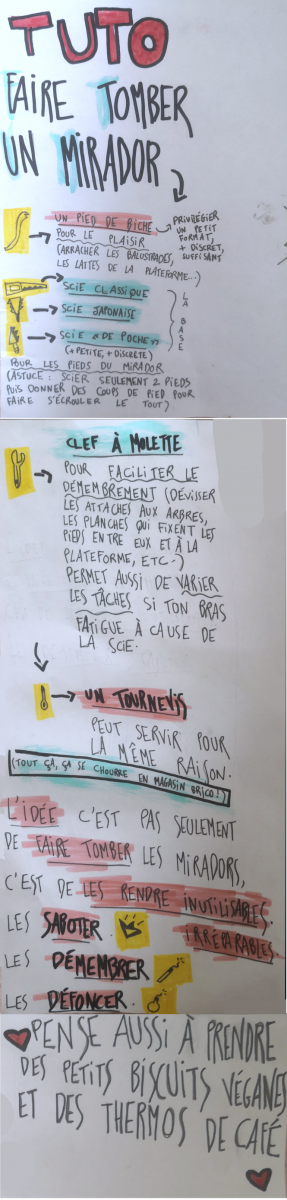 TUTO
FAIRE TOMBER
UN MIRADOR
UN PIED DE BICHE
PRIVILÉGIER
UN PETIT
FORMAT,
+ DISCRET,
SUFFISANT
POUR LE PLAISIR
(ARRACHER LES BALUSTRADES,
LES LATTES DE LA PLATEFORME...)
SCIE CLASSIQUE
SCIE JAPONAISE
SCIE "DE POCHE"
(+ PETITE, + DISCRÈTE)
LA BASE
POUR LES PIEDS DU MIRADOR
(ASTUCE : SCIER SEULEMENT 2 PIEDS
PUIS DONNER DES COUPS DE PIED POUR
FAIRE S'ÉCROULER LE TOUT)
CLEF À MOLETTE
POUR FACILITER LE
DÉMEMBREMENT (DÉVISSER
LES ATTACHES AUX ARBRES,
LES PLANCHES QUI FIXENT LES
PIEDS ENTRE EUX ET À LA
PLATEFORME, ETC.)
PERMET AUSSI DE VARIER
LES TÂCHES SI TON BRAS
FATIGUE À CAUSE DE
LA SCIE.
UN TOURNEVIS
PEUT SERVIR POUR
LA MÊME RAISON.
(TOUT ÇA, ÇA SE CHOURRE EN MAGASIN BRICO!)
L'IDÉE C'EST PAS SEULEMENT
DE FAIRE TOMBER LES MIRADORS,
C'EST DE LES RENDRE INUTILISABLES.
IRRÉPARABLES
LES SABOTER.
LES DÉMEMBRER
LES DÉFONCER.
PENSE AUSSI À PRENDRE
DES PETITS BISCUITS VÉGANES
ET DES THERMOS DE CAFÉ